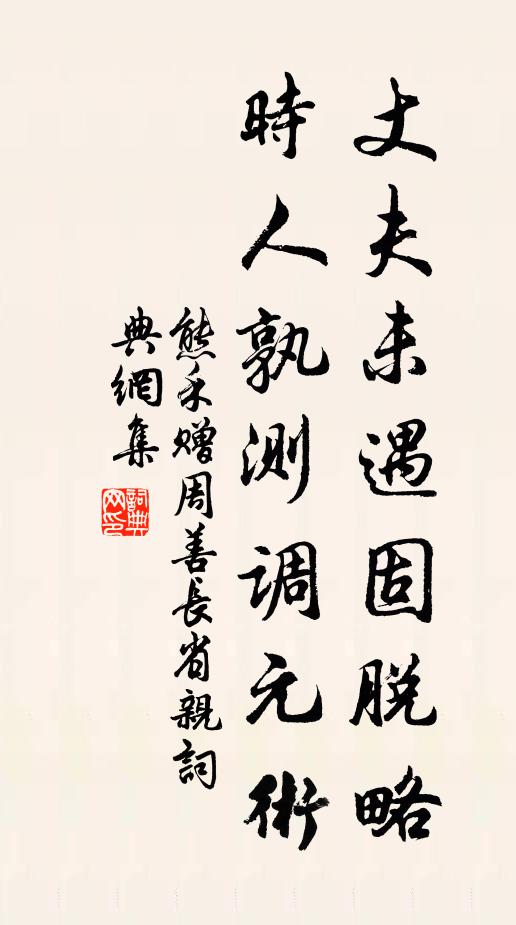 丈夫未遇固脫略
時人孰測調元術
熊禾贈周善長省親詞
典網集
詞典網印